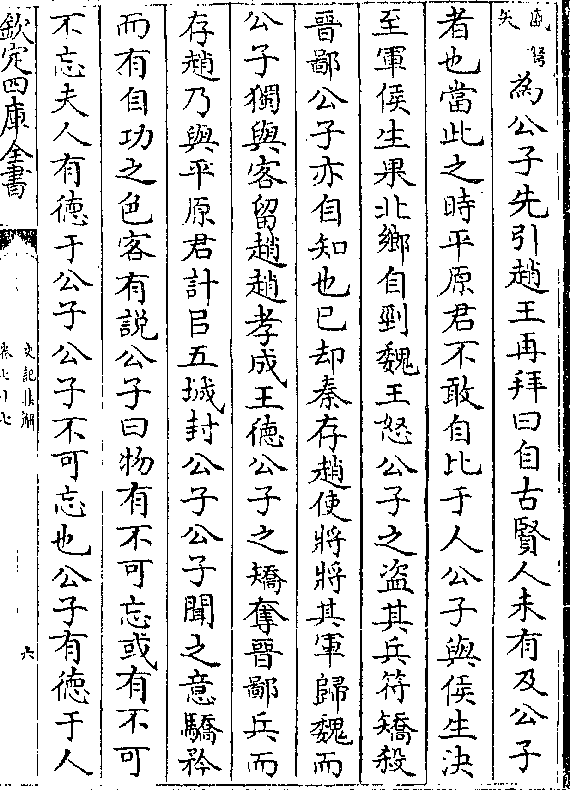 為公子先引趙王再拜曰自古賢人未有及公子
者也當此之時平原君不敢自比于人公子與侯生決
至軍侯生果北鄉自剄魏王怒公子之盗其兵符矯殺
晉鄙公子亦自知也已却秦存趙使將將其軍歸魏而
公子獨與客留趙趙孝成王德公子之矯奪晉鄙兵而
存趙乃與平原君計㠯五城封公子公子聞之意驕矜
而有自功之色客有説公子曰物有不可忘或有不可
不忘夫人有德于公子公子不可忘也公子有德于人
欽定四庫全書
史記
六